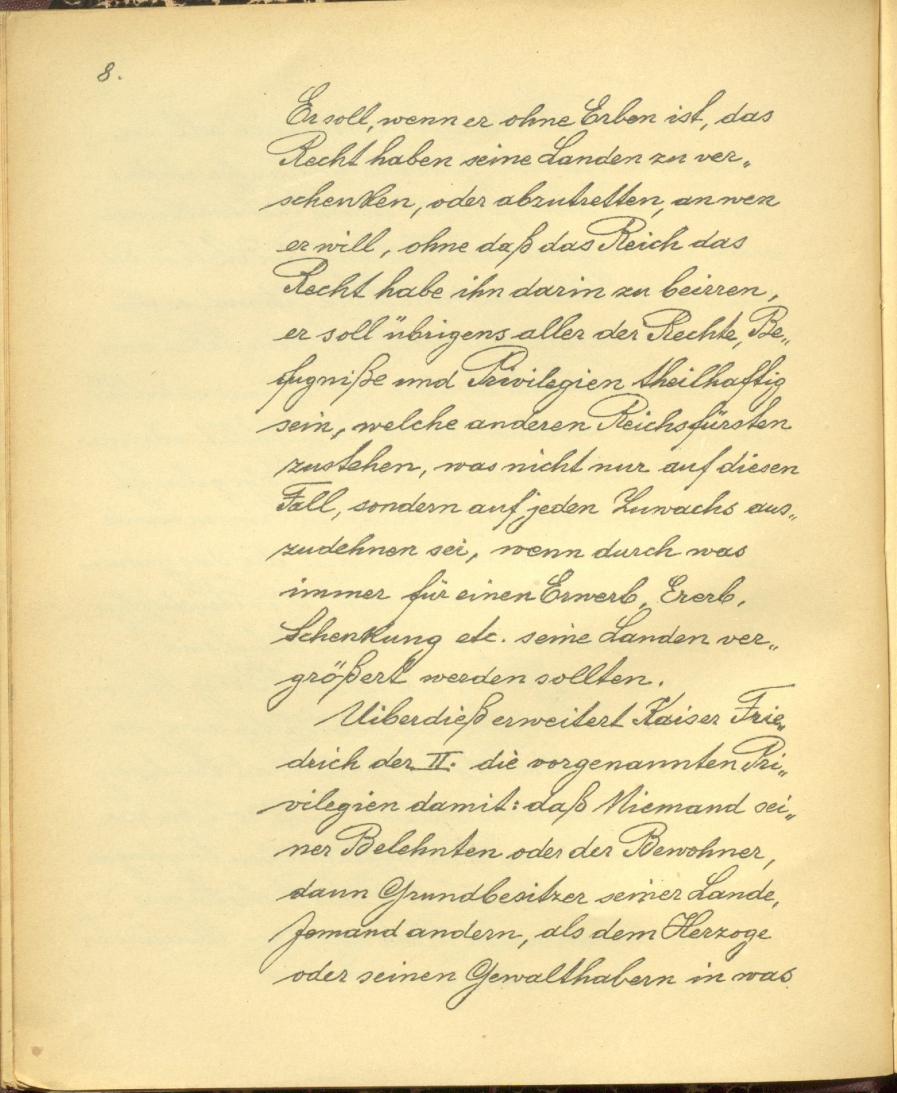 8.
Er soll, wenn er ohne Erben ist, das
Recht haben seine Landen zu ver„
schenken, oder abzutretten, an wen
er will, ohne daß das Reich das
Recht habe ihn darin zu beirren,
er soll übrigens aller der Rechte, Be„
fugniße und Privilegien theilhaftig
sein, welche anderen Reichsfürsten
zustehen, was nicht nur auf diesen
Fall, sondern auf jeden Zuwachs aus„
zudehnen sei, wenn durch was
immer für einen Erwerb, Ererb,
Schenkung etc. seine Landen ver„
größert werden sollten.
Uiberdieß erweitert Kaiser Frie„
drich der II. die vorgenannten Pri„
vilegien damit: daß Niemand sei„
ner Belehnten oder der Bewohner,
dann Grundbesitzer seiner Lande,
Jemand andern, als dem Herzoge
oder seinen Gewalthabern in was